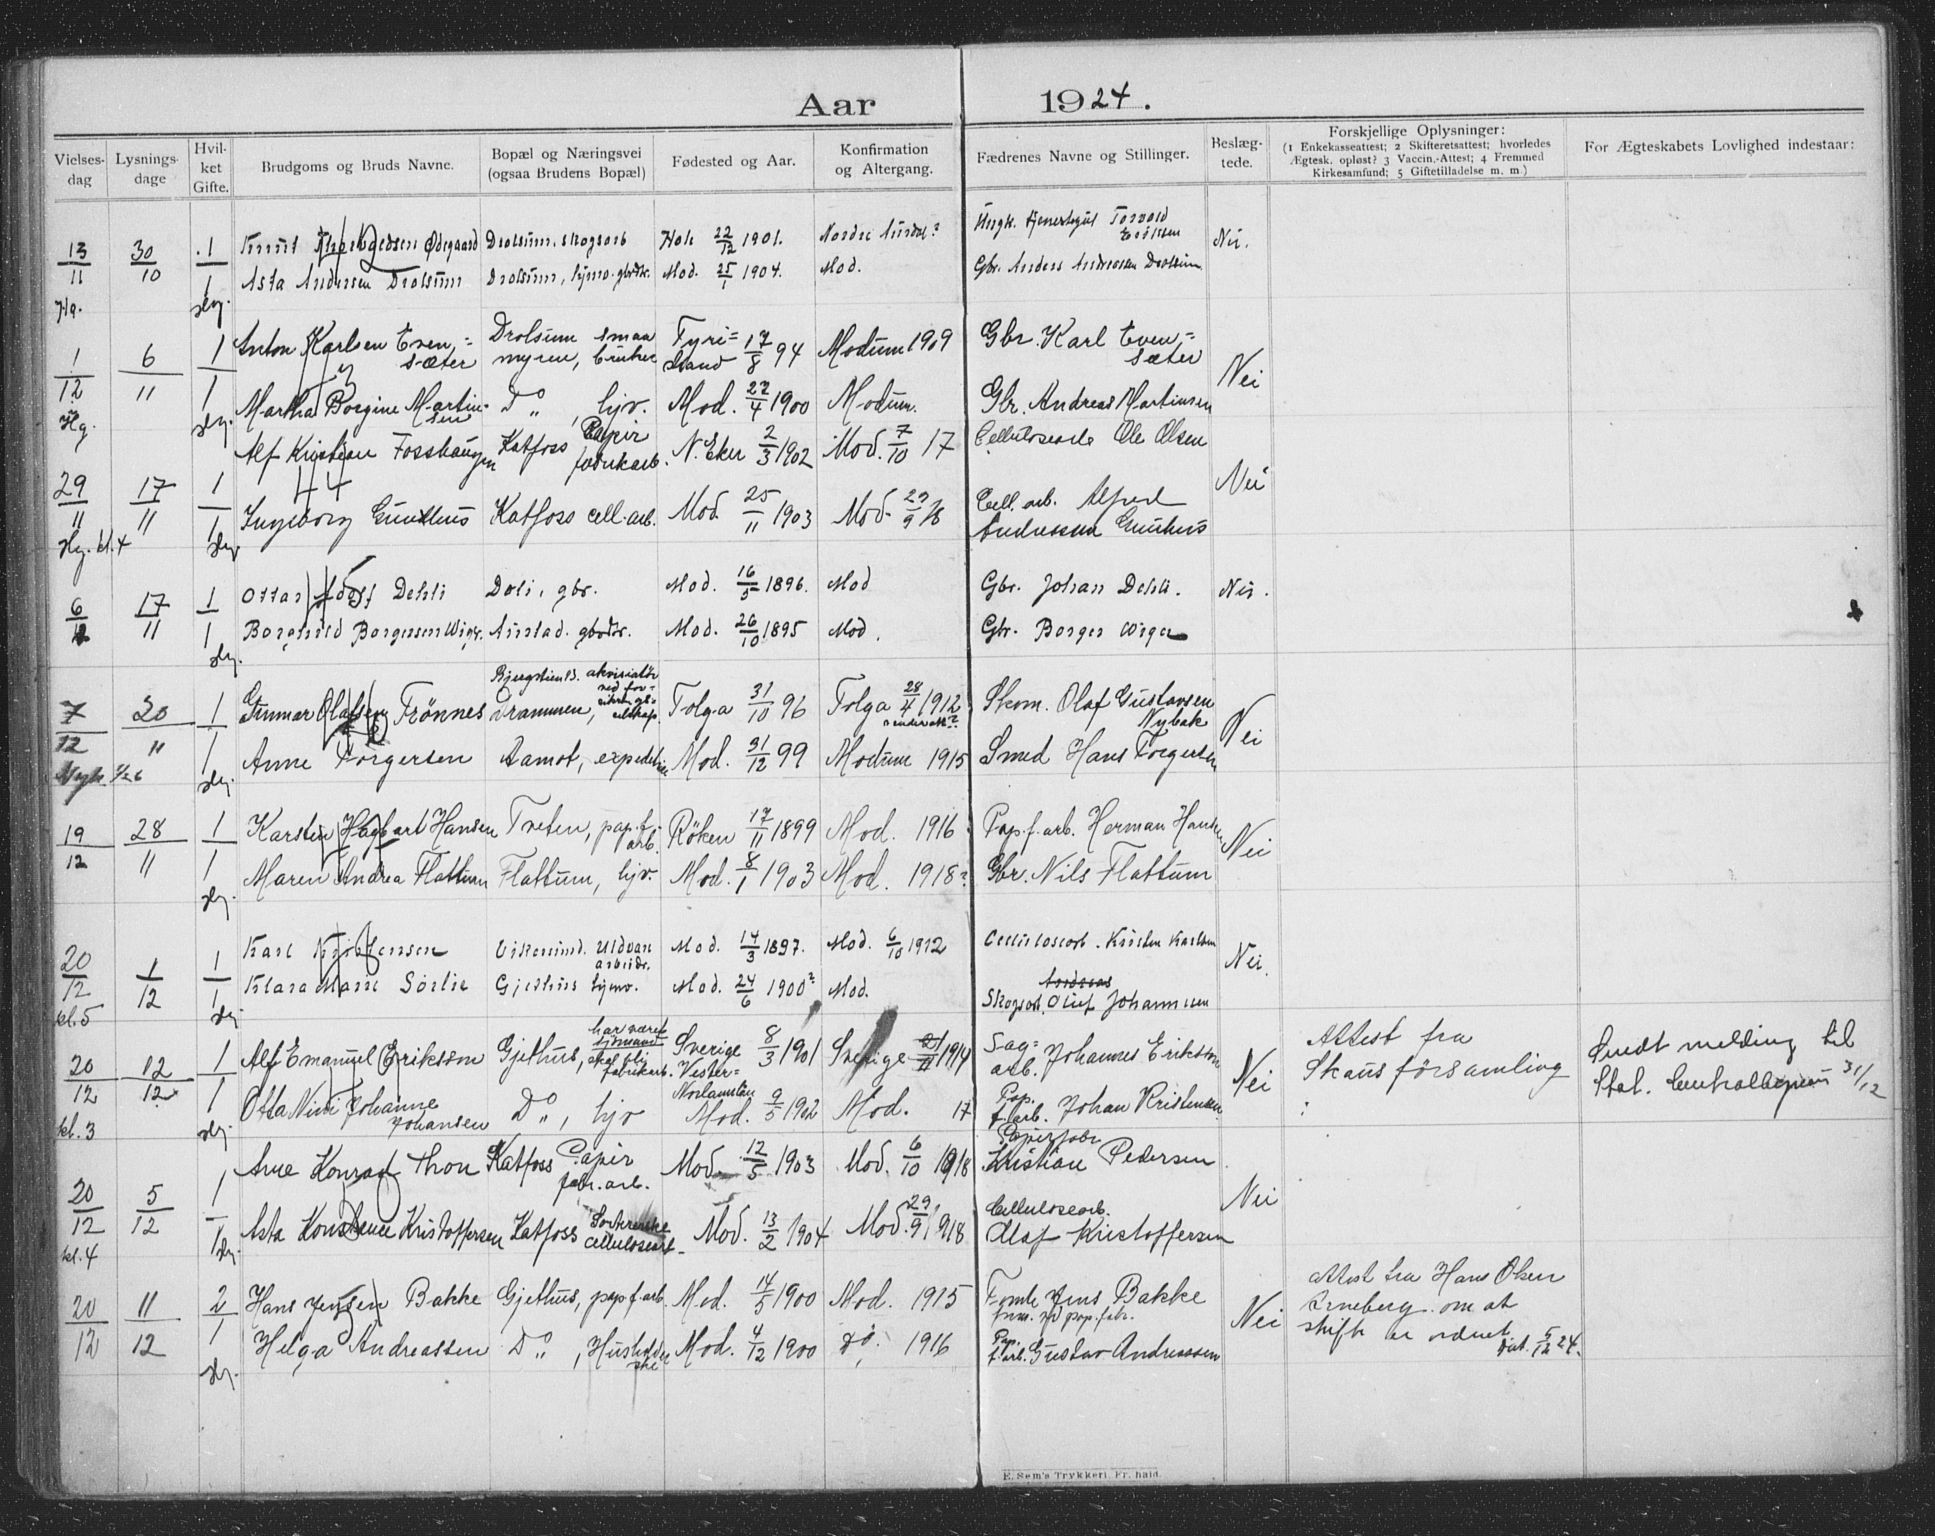 Aar 1924.
Vielses-dag
Lysnings-dage
Hvil-ket Gifte.
Brudgoms og Bruds Navne.
Bopæl og Næringsvei (ogsaa Brudens Bopæl)
Fødested og Aar.
Konfirmation og Altergang.
Fædrenes Navne og Stillinger.
Beslæg-tede.
Forskjellige Oplysninger:
(1 Enkekasseattest; 2 Skifteretsattest; hvorledes
Ægtesk. opløst? 3 Vaccin.-Attest; 4 Fremmed
Kirkesamfund; 5 Giftetilladelse m. m.)
For Ægteskabets Lovlighed indestaar:
13/11 30/10 1 Knut Ødegaard Drolsum, skogsarb Hole 22/12 1901. Nordre Aurdal? Torvald Nei.
1 Asta Andersen Drolsum Drolsum, hjmv. gbrdtr. Mod. 25/1 1904. Mod. Gbr. Anders Andreassen Drolsum
1/12 6/11 1 Anton Karlsen Even= Drolsum smaa Fyri= 17/8 94 Modum 1909 Gbr. Karl Even=
sæter myren, bruker strand sæter Nei
Hg. 1 Martha Borgine Martin- Do „ , hjv. Mod. 22/4 1900 Modum. Gbr. Andreas Martinsen
sen
29/11 17/11 1 Alf Kristian Fosshaugen Katfoss Papir N. Eker 2/3 1902 Mod. 7/10 17 Cellulosearb. Ole Olsen
fabrikarb. Nei
Hg. kl. 4 1 Ingeborg Gunthus Katfoss cell. arb. Mod. 25/11 1903 Mod. Cell. arb. Alfred
Andreassen Gunhus
6/12 17/11 1 Ottar Adolf Dehli Doli, gbr. Mod. 16/5 1896. Mod Gbr. Johan Dehli. Nei.
1 Borghild Borgersen Wiger Aurstad. gbrdtr. Mod. 26/10 1895 Mod. Gbr. Borger Wiger
7/12 20/11 1 Gunnar Olafsen Frönnes Drammen, Tolga 31/10 96 Tolga 28/4 1912 Skom. Olaf Gustavsen
Nybak Nei
1 Anne Torgersen Aamot, Mod. 31/12 99 Modum 1915 Smed Hans Torgersen
19/12 28/11 1 Karsten Hagbart Hansen Treten, pap. f. Røken 17/11 1899 Mod. 1916 Pap. f. arb. Herman Hansen Nei
arb.
1 Maren Andrea Flattum Flattum, hjv. Mod. 8/1 1903 Mod. 1918? Gbr. Nils Flattum
20/12 1/12 1 Karl Kristensen Vikersund. Uldvare Mod. 14/3 1897. Mod. 6/10 1912 Cellulosearb. Kristen Karlsen Nei.
arbeidr.
kl. 5 1 Klara Marie Sörlie Gjethus hjmv. Mod. 24/6 1900? Mod. Andreas
Skogsarb. Oluf Johannesen
20/12 12/12 1 Alf Emanuel Eriksson Gjethus, har været Sverige 8/3 1901 Sverige 1914 Sag=
sjømand skal bli fabrikarb. Vester=Norlanslän arb. Johannes Eriksson Nei
kl. 3 1 Otta Nini Johanne Do „ , hjv Mod. 9/5 1902 Mod. 17 Pap.
Johansen f. arb. Johan Kristensen
Attest fra
Skaus församling
Sendt melding til
Stat. Centralbyraa 31/12
20/12 5/12 1 Arne Konrad Thon Katfoss Papir Mod. 12/5 1903 Mod. 6/10 1918 Papirfabr
fabr. arb. Kristian Pedersen Nei
kl. 4 1 Asta Konstance Kristoffersen Katfoss Mod. 13/2 1904 Mod. 29/9 1918 Cellulosearb.
cellulosearb. Olaf Kristoffersen
20/12 11/12 2 Hans Jensen Bakke Gjethus, pap. f. arb. Mod. 14/5 1900 Mod. 1915 Jens Bakke Nei
1 Helga Andreassen Do „ , Mod. 4/12 1900 Do. 1916 Pap.
f. arb. Gustav Andreassen
attest fra Hans Olsen
Arneberg om at
skifte er ordnet
dat. 5/12 24.
E. Sem's Trykkeri, Fr. hald.